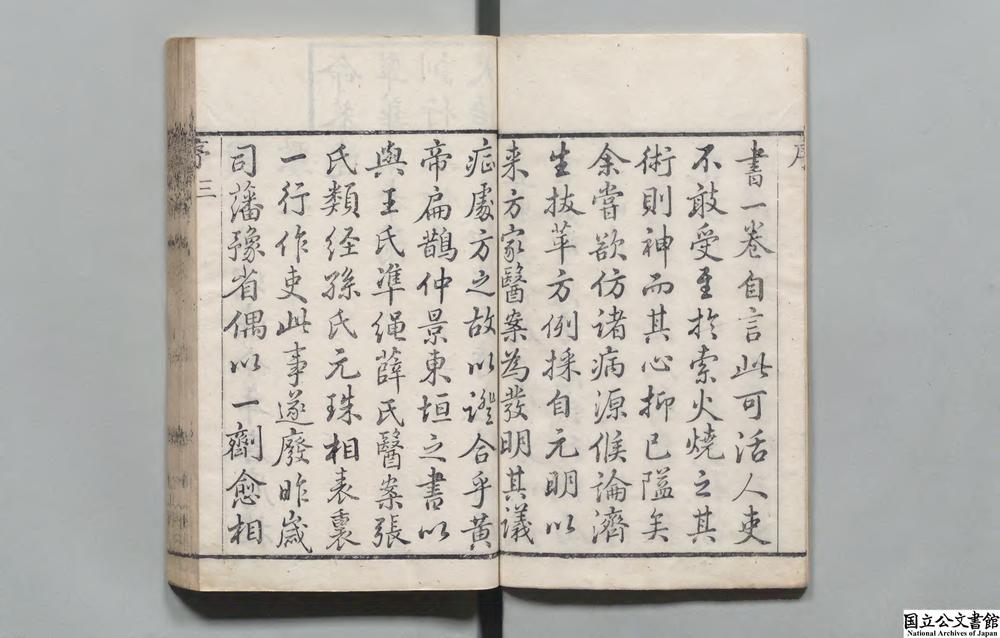 序
書一卷自言此可活人吏
不敢受至於索火燒之其
術則神而其心抑已隘矣
余嘗欲仿諸病源候論濟
生拔萃方例採自元明以
来方家醫案為發明其議
症處方之故以證合乎黃
帝扁鵲仲景東垣之書以
與王氏準繩薛氏醫案張
氏類経孫氏元珠相表裏
一行作吏此事遂廢昨歲
司藩豫省偶以一劑愈相
序 三
国立公文書館
National Archives of Japan